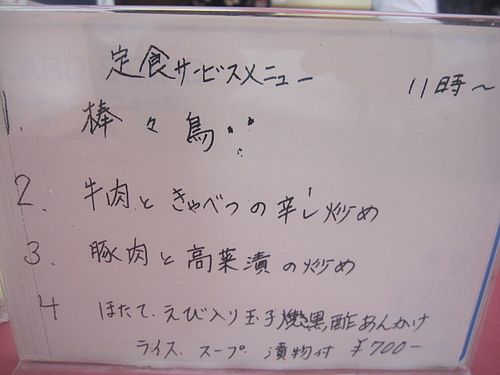 定食サービスメニュー
11時～
1. 棒々鳥
2. 牛肉ときゃべつの辛し炒め
3. 豚肉と高菜漬の炒め
4 ほたて、えび入り玉子燒黒酢あんかけ
ライス、スープ、漬物付 ¥700-